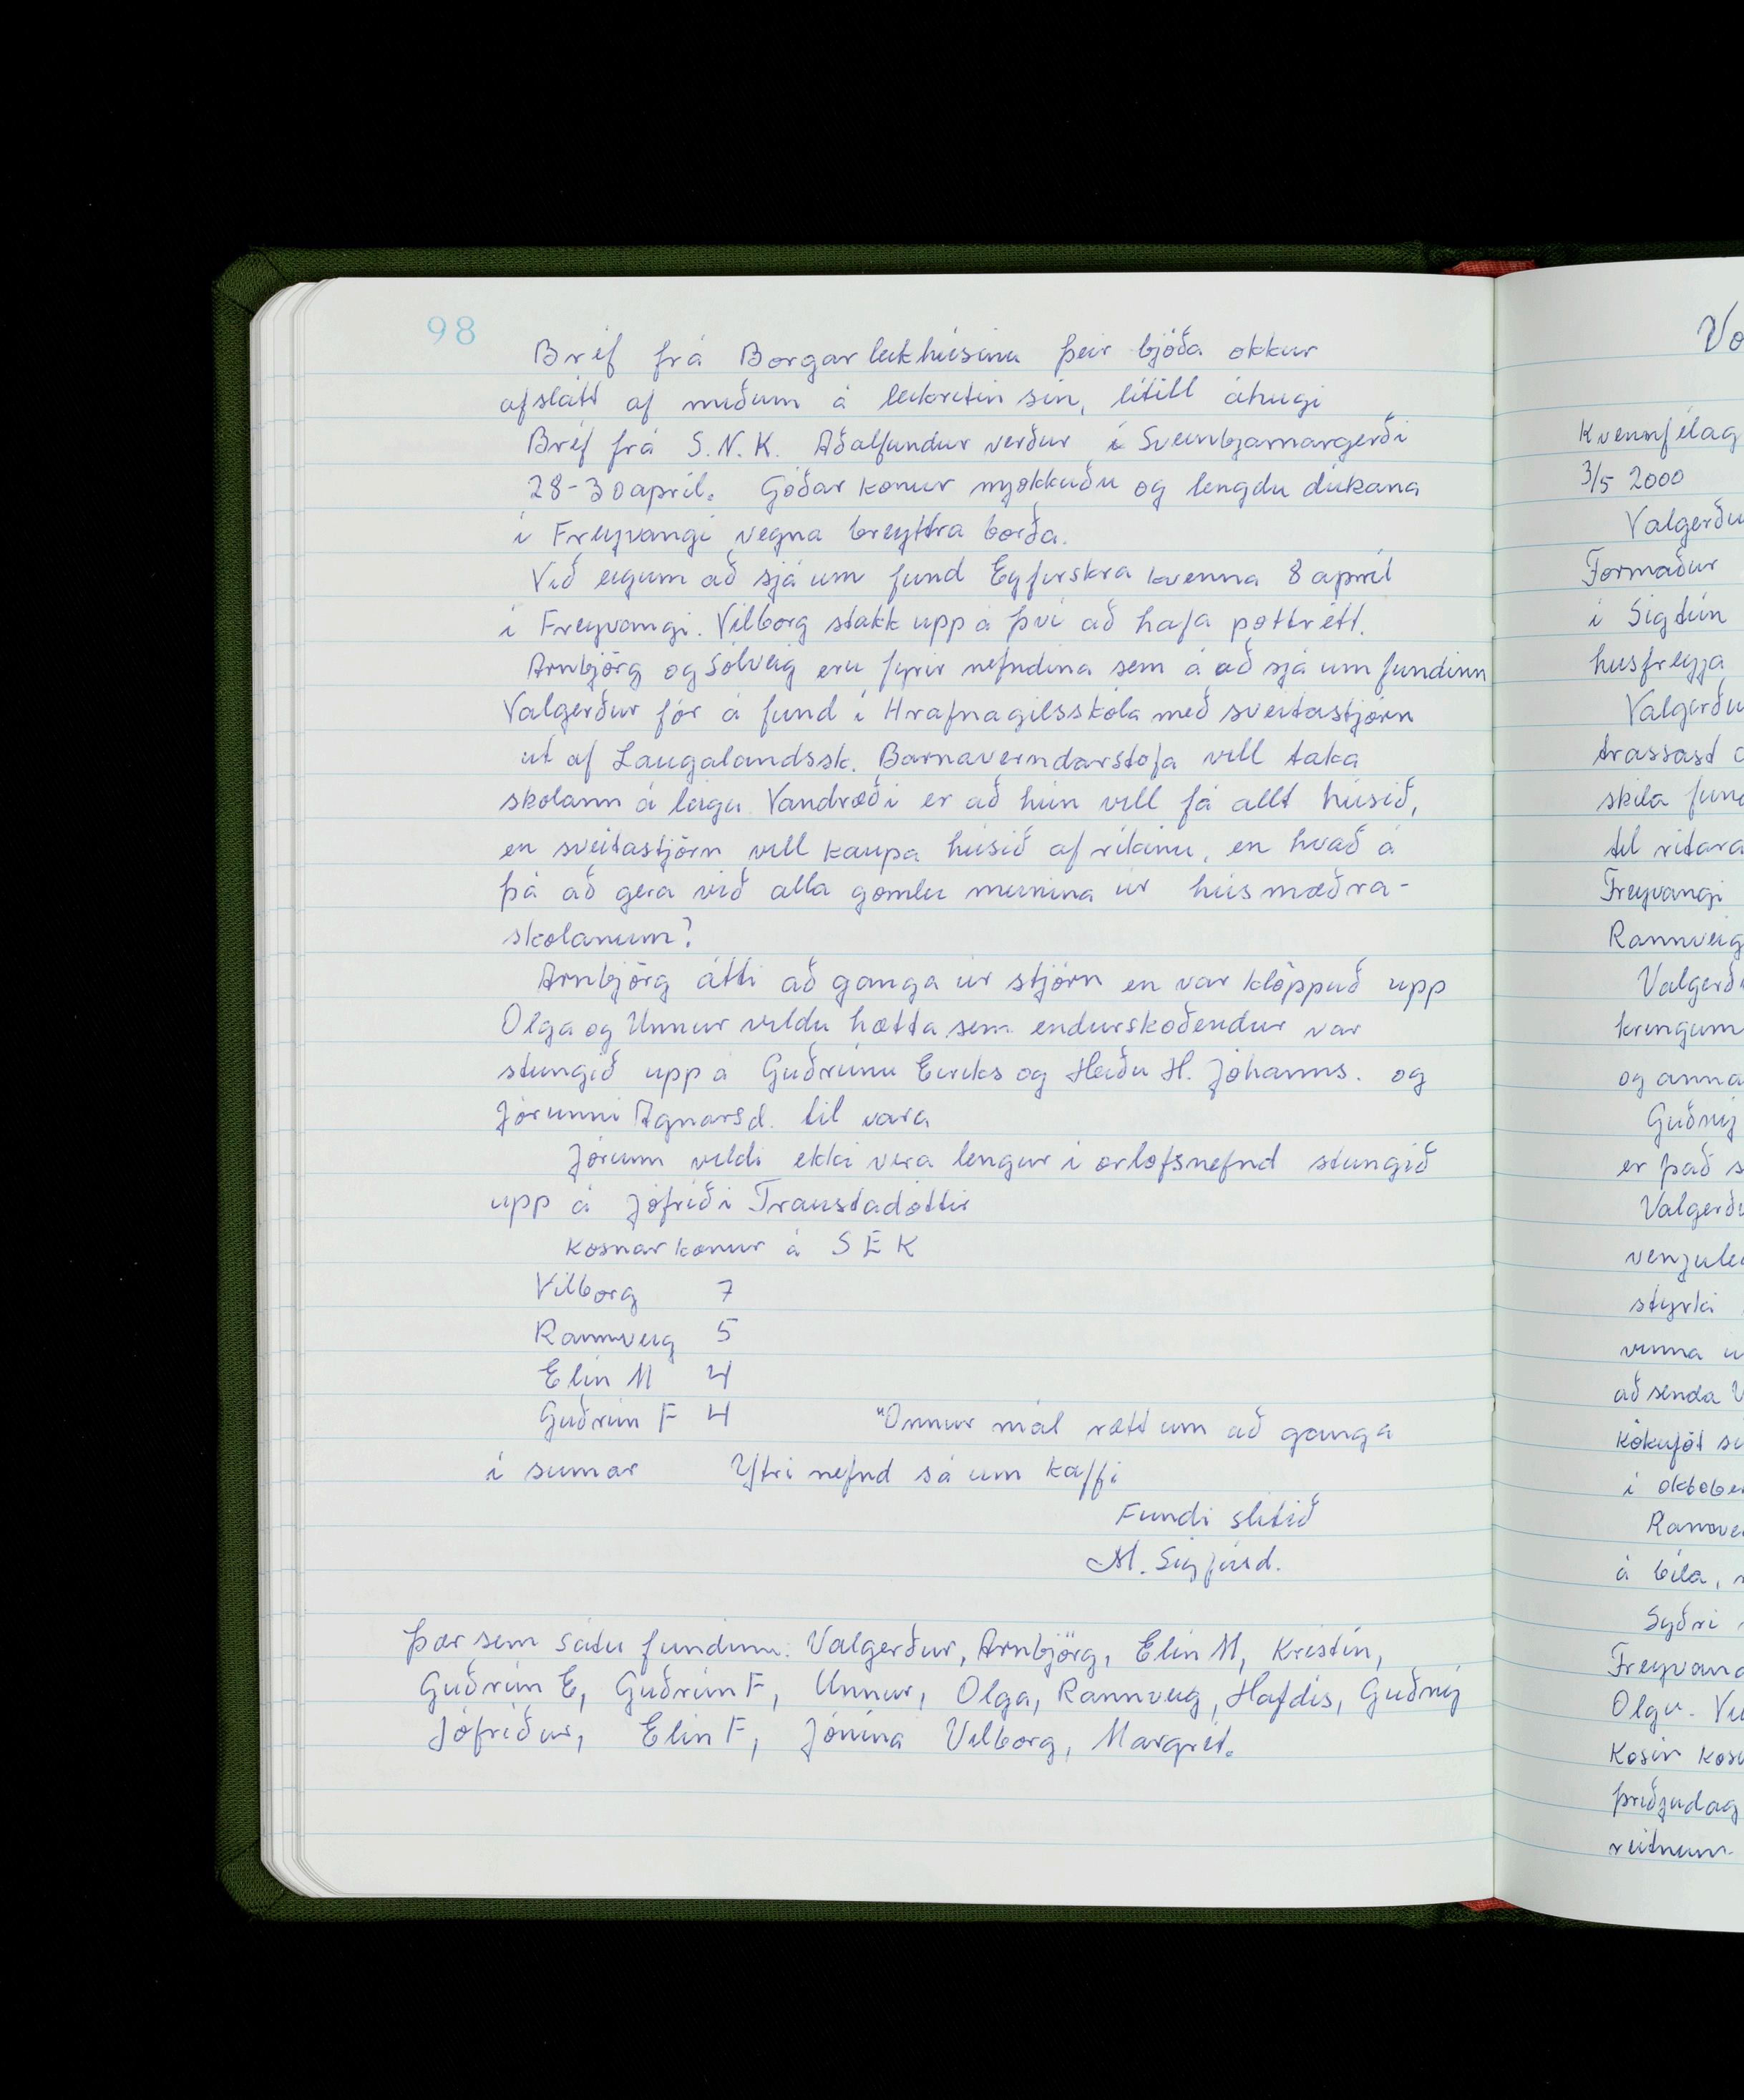 98
Bréf frá Borgarleikhúsinu þeir bjóða okkur
afslátt af miðum á leikritin sín, lítill áhugi
Bréf frá S.N.K. Aðalfundur verður í Sveinbjarnargerði
28-30 apríl. Góðar konur mjókkuðu og lengdu dúkana
í Freyvangi vegna breyttra borða.
Við eigum að sjá um fund Eyfirskra kvenna 8 apríl
í Freyvangi. Vilborg stakk upp á því að hafa pottrétt.
Arnbjörg og Sólveig eru fyrir nefndina sem á að sjá um fundinn
Valgerður fór á fund í Hrafnagilsskóla með sveitastjórn
út af Laugalandssk. Barnaverndarstofa vill taka
skólann á leigu. Vandræði er að hún vill fá allt húsið,
en sveitastjórn vill kaupa húsið af ríkinu, en hvað á
þá að gera við alla gömlu munina úr húsmæðra-
skólanum?
Arnbjörg átti að ganga úr stjórn en var klöppuð upp
Olga og Unnur vildu hætta sem endurskoðendur var
stungið upp á Guðrúnu Eiriks og Heiðu H. Jóhanns. og
Jórunni Agnarsd. til vara
Jórunn vildi ekki vera lengur í orlofsnefnd stungið
upp á Jófríði Traustadóttir
Kosnar konur á SEK
Vilborg 7
Rannveig 5
Elín M 4
Guðrún F 4 Önnur mál rætt um að ganga
í sumar Ytri nefnd sá um kaffi
Fundi slitið
M. Sigfúsd.
Þær sem sátu fundinn: Valgerður, Arnbjörg, Elín M, Kristín,
Guðrún E, Guðrún F, Unnur, Olga, Rannveig, Hafdís, Guðný
Jófríður, Elín F, Jónína Vilborg, Margrét.
Kvennfélag
3/5 2000
Valgerðu
Formaður
í Sigtún
húsfreyja
Valgerðu
trassast
skila fund
til ritara
Freyvangi
Rannveig
Valgerðu
kringum
og anna
Guðný
er það s
Valgerðu
venjule
styrki
vinna u
að senda V
kökuföt
í október
Rannve
á bíla,
Syðri
Freyvang
Olgu. Vi
Kosin kos
þriðjudag
reitnum